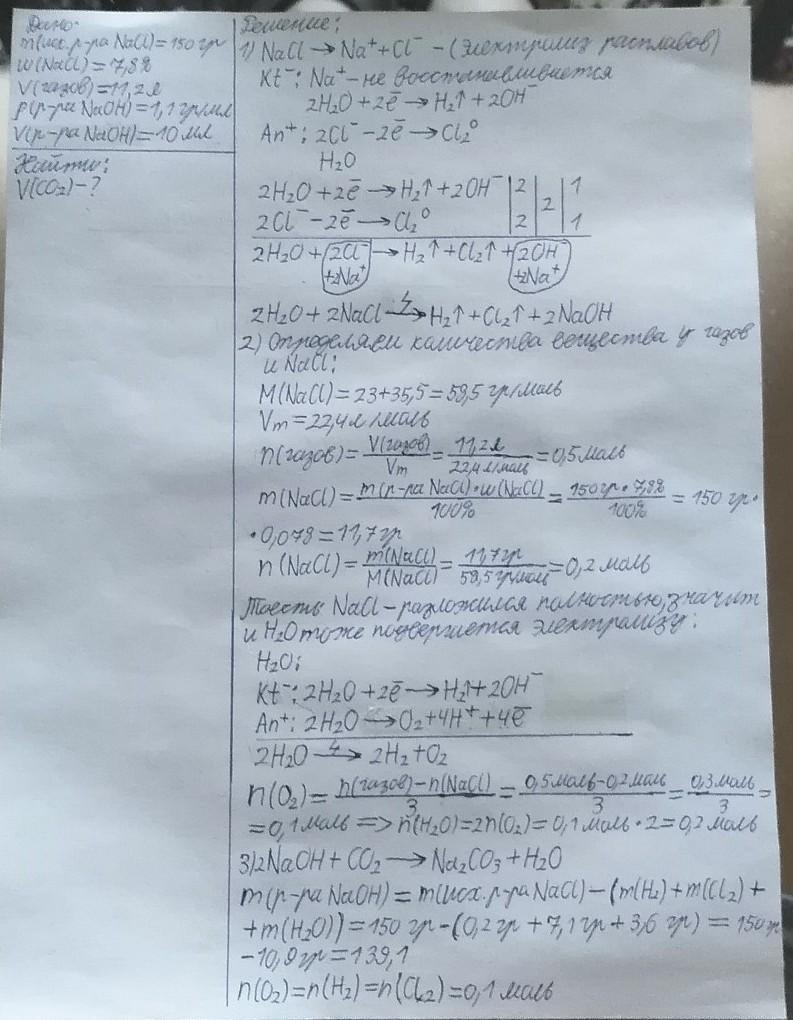 Дано:
m(исх.р-ра NaCl)=150гр
w(NaCl)=7,8%
V(газов)=11,2л
ρ(р-ра NaOH)=1,1гр/мл
V(р-ра NaOH)=10мл
Найти:
V(CO₂)-?
Решение:
1) NaCl→Na⁺+Cl⁻ - (Электролиз расплавов)
Kt⁻: Na⁺-не восстанавливается
2H₂O+2e̅→H₂↑+2OH⁻
An⁺: 2Cl⁻-2e̅→Cl₂⁰
H₂O
2H₂O+2e̅→H₂↑+2OH⁻|2|2|1
2Cl⁻-2e̅→Cl₂⁰ |2| |1
2H₂O+2Cl⁻→H₂↑+Cl₂↑+2OH⁻
+2Na⁺ +2Na⁺
2H₂O+2NaCl→H₂↑+Cl₂↑+2NaOH
2) Определяем количества вещества у газов
и NaCl:
M(NaCl)=23+35,5=58,5гр/моль
Vm=22,4л/моль
n(газов)=V(газов)/Vm=11,2л/22,4л/моль=0,5моль
m(NaCl)=m(р-ра NaCl)·w(NaCl)/100%=150гр·7,8%/100%=150гр·
·0,078=11,7гр
n(NaCl)=m(NaCl)/M(NaCl)=11,7гр/58,5гр/моль=0,2моль
Тоесть NaCl-разложился полностью, значит
и H₂O тоже подвергается электролизу:
H₂O:
Kt⁻: 2H₂O+2e̅→H₂↑+2OH⁻
An⁺: 2H₂O→O₂+4H⁺+4e̅
2H₂O→2H₂+O₂
n(O₂)=n(газов)-n(NaCl)/3=0,5моль-0,2моль/3=0,3моль/3=
=0,1моль=>n(H₂O)=2n(O₂)=0,1моль·2=0,2моль
3)2NaOH+CO₂→Na₂CO₃+H₂O
m(р-ра NaOH)=m(исх.р-ра NaCl)-(m(H₂)+m(Cl₂)+
+m(H₂O))=150гр-(0,2гр+7,1гр+3,6гр)=150гр
-10,9гр=139,1
n(O₂)=n(H₂)=n(Cl₂)=0,1моль